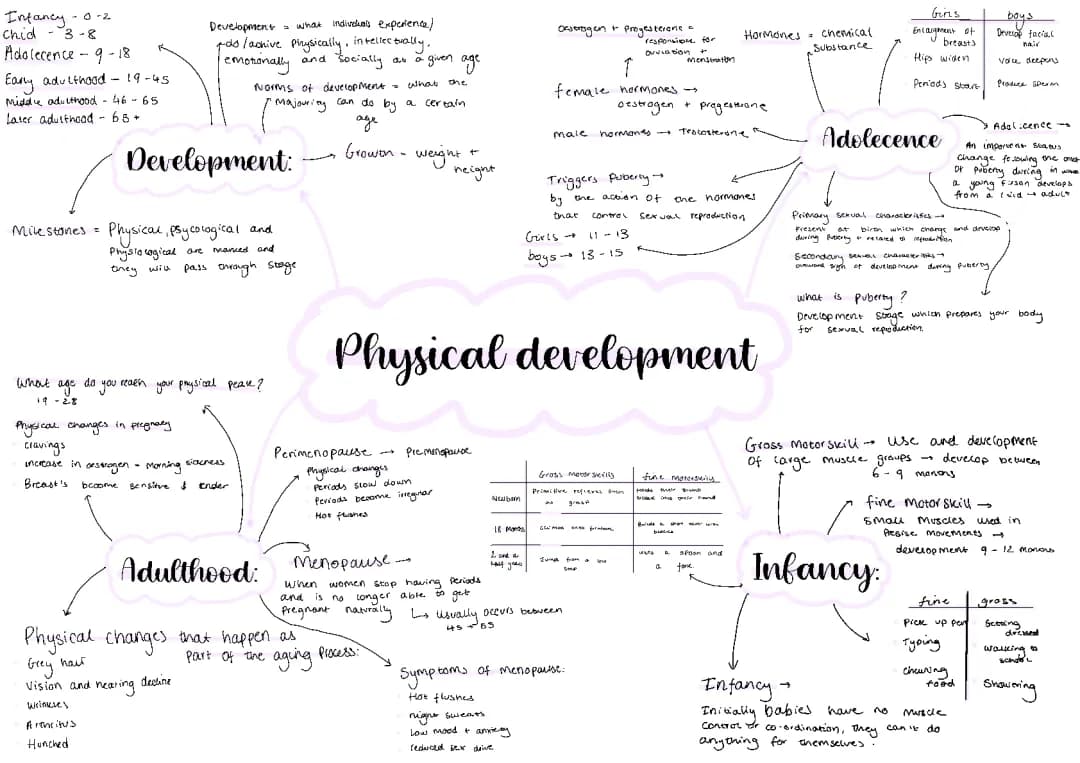 Infancy - 0-2
Chid - 3-8
Adolecence - 9-18
Early adulthood - 19-45
Middle adulthood - 46-65
Later adulthood - 65+
Development = what individuals experience/
do/achive physically, intellectually,
emotionally and socially at a given age
Norms of development = what the
majourity can do by a certain
age
Development:
Growth - weight +
height
Milestones = Physical, psycological and
Physiological are marked and
they will pass through stage
oestrogen + Progesterone =
responsible for
ovulation +
menstration
Hormones = chemical
substance
Girls
boys
Enlargment of
breasts
Develop facial
hair
Hips widen
voice deepens
Periods start
Produce sperm
female hormones →
oestrogen + progesterone
male hormones → Testosterone
Adolecence
Adolicence →
An important status
change following the onset
of Puberty during in
a young Person develops
from a child → adult
Triggers Puberty →
by the action of the hormones
that control sexual reproduction
Girls → 11-13
boys → 13-15
Primary sexual characteristics →
Present at birth which change and develop
during Puberty + related to reproduction
Secondary sexual characteristics →
outward sign of development during Puberty
what is Puberty?
Development stage which prepares your body
for sexual reproduction.
Physical development
What age do you reach your physical peak?
19-28
Physical changes in pregnacy
cravings
increase in oestrogen = morning sickness
Breast's become sensitive & ender
Perimenopause → Premenopause
Physical changes
Periods slow down
Periods become irregular
Hot flushes
Adulthood:
Menopause →
When women stop having periods
and is no longer able to get
Pregnant naturally
↳ usually occurs between
45 + 55
Physical changes that happen as
Part of the aging Process:
Grey hair
Vision and hearing decline
Wrinkles
Arthritus
Hunched
Symptoms of menopause:
Hot flushes
night sweats
Low mood + anxiety
reduced sex drive
Gross motor skills
fine motor skills
Newborn
Primitive reflexes such
as grasp
18 Months
Climbs onto furniture
2 and a
half years
Jumps from a low
step
uses a spoon and
a fork
Gross motor skill → use and development
of large muscle groups → develop between
6-9 months
fine motor skill →
small muscles used in
Precise movements →
development 9-12 months
Infancy:
fine
gross
Pick up pen
Getting
dressed
Typing
walking to
school
chewing
food
Showering
Infancy →
Initially babies have no muscle
control or co-ordination, they can't do
anything for themselves.